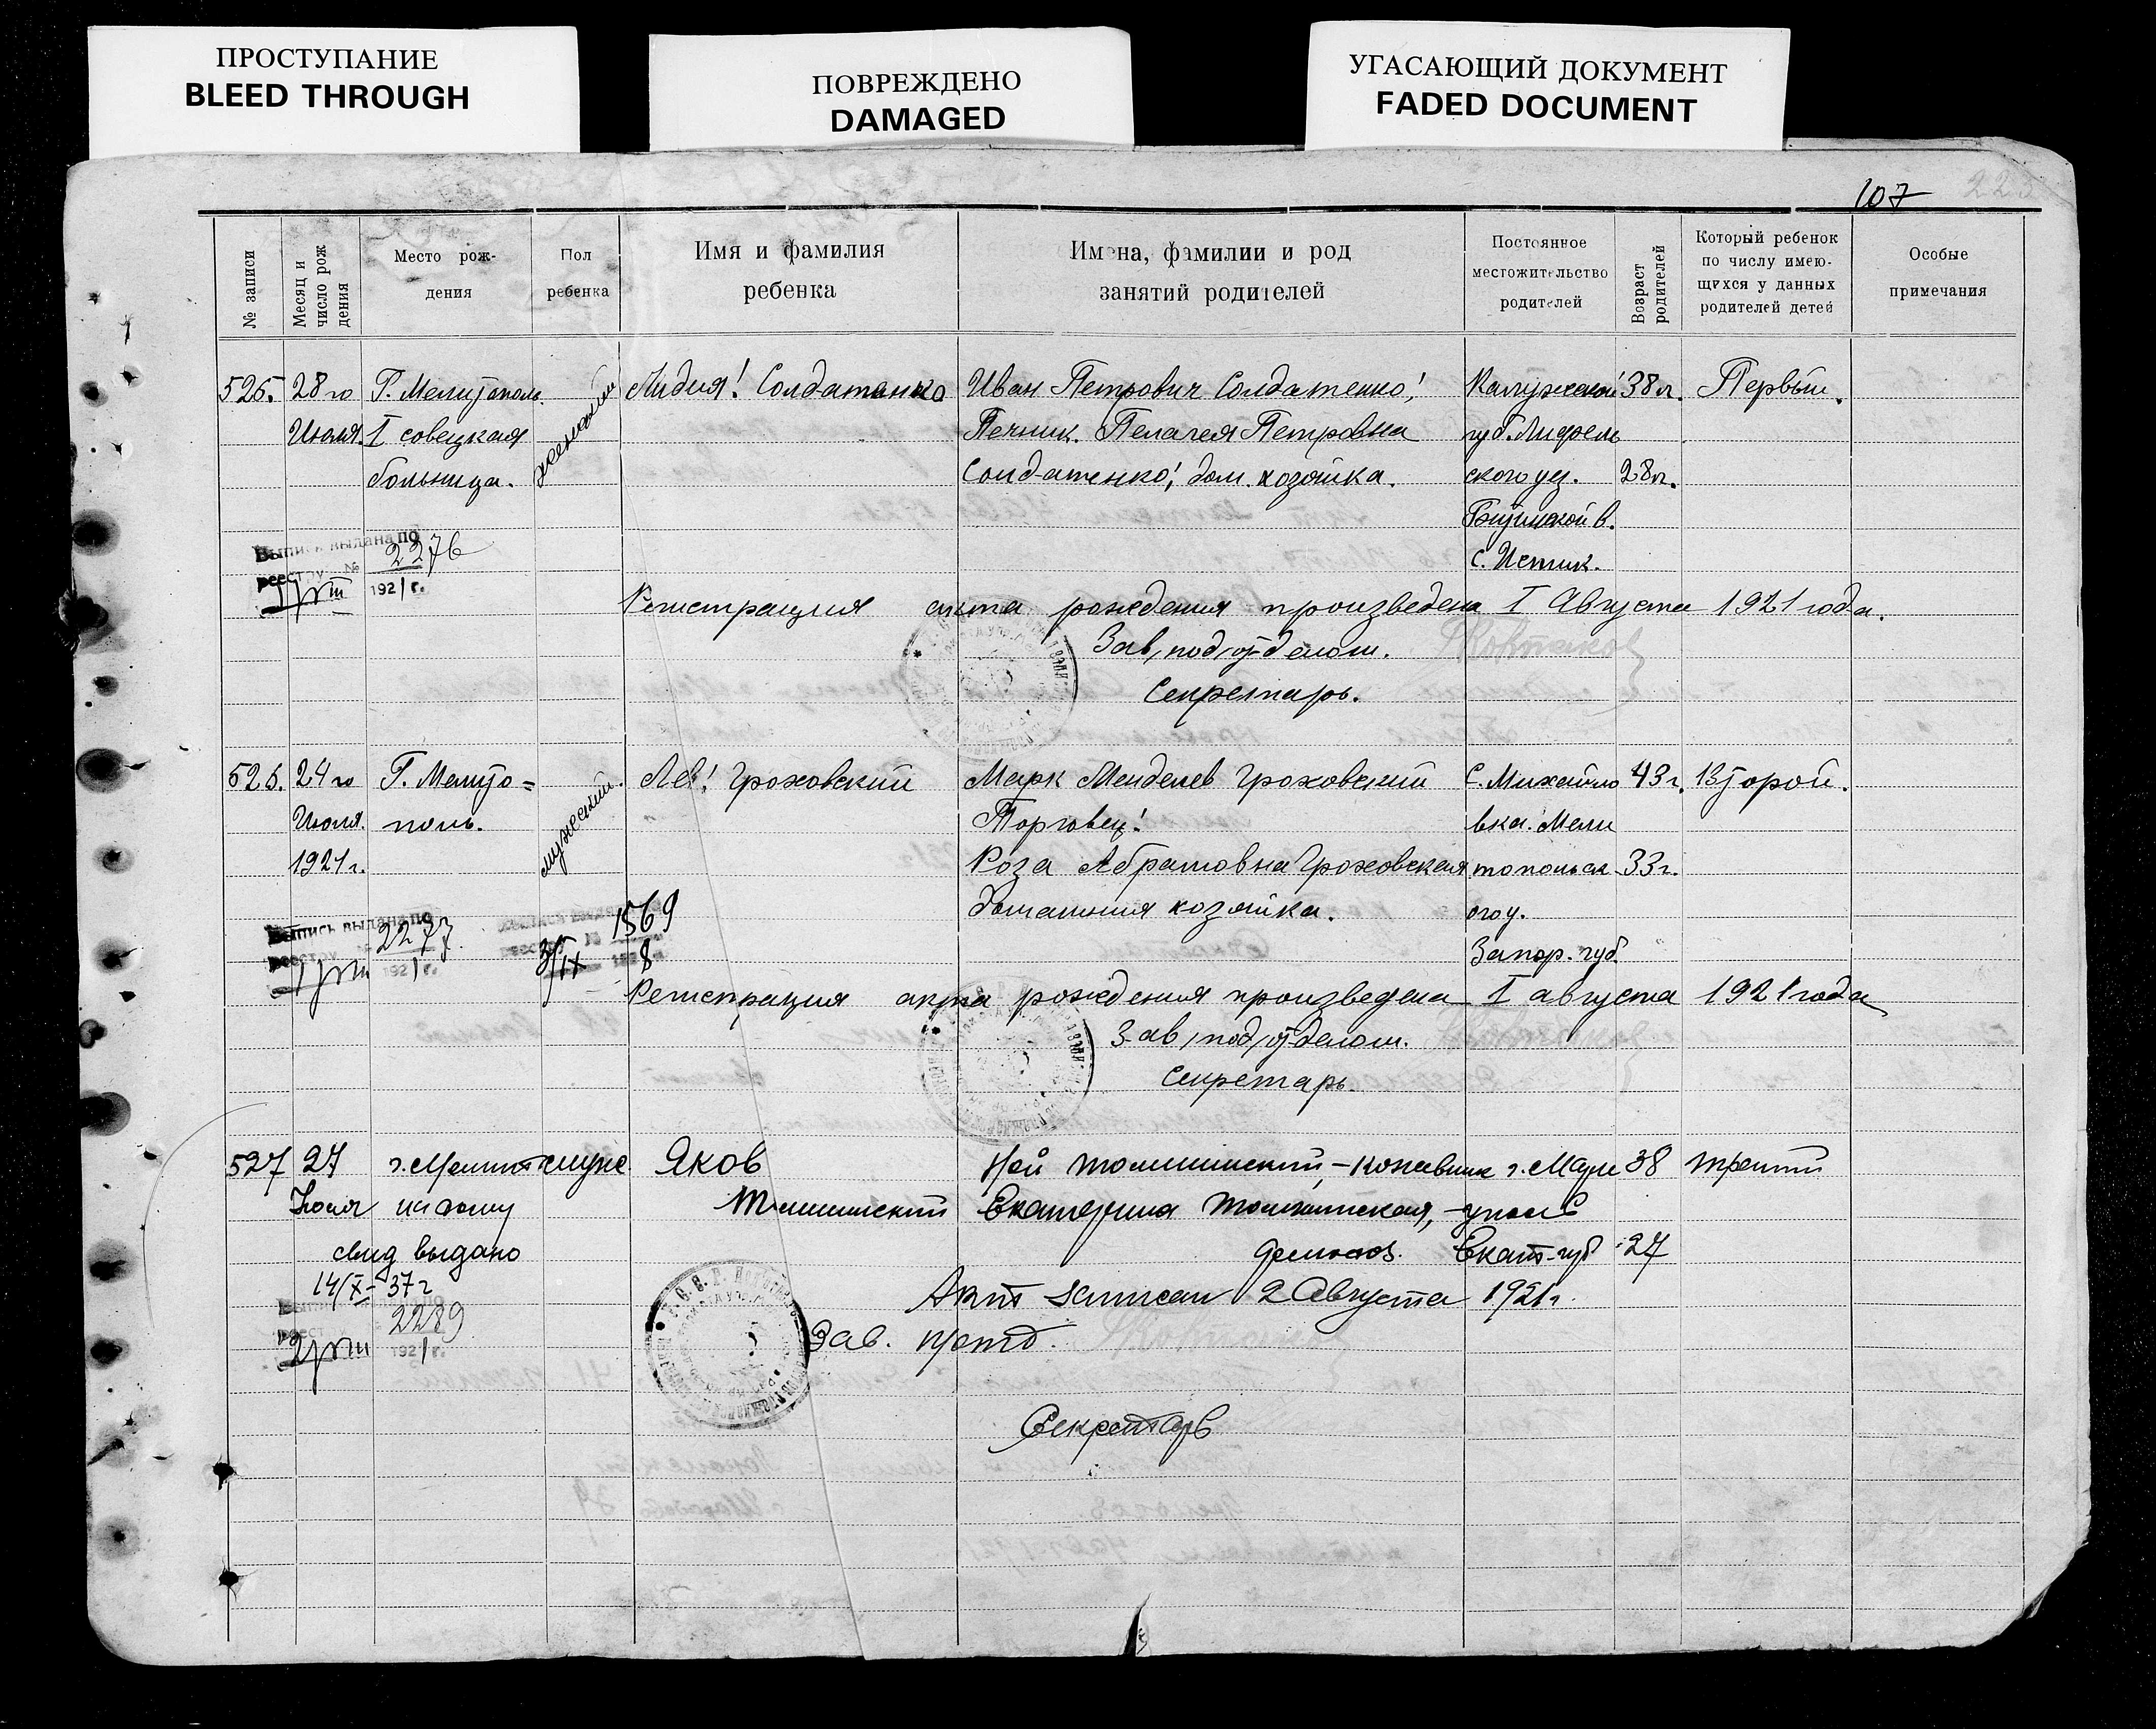 ПРОСТУПАНИЕ
BLEED THROUGH
ПОВРЕЖДЕНО
DAMAGED
УГАСАЮЩИЙ ДОКУМЕНТ
FADED DOCUMENT
107
№ записи
Месяц и число рождения
Место рож-
дения
Пол
ребенка
Имя и фамилия
ребенка
Имена, фамилии и род
занятий родителей
Постоянное
местожительство
родителей
Возраст
родителей
Который ребенок
по числу имею-
щихся у данных
родителей детей
Особые
примечания
525. 28го Г. Мелитополь. женский Лидия! Солдатенко Иван Петрович Солдатенко! Калужской 38л. Первый.
Июля. I совецкая Печник. Пелагея Петровна губ.
больница. Солдатенко! дом. хозяйка. ского уез. 28л.
в.
с.
Выпись выдана по
реестру № 2276
1/VIII 1921 г.
Регистрация акта рождения произведена I Августа 1921 года.
Зав, под,отделом.
Секретарь.
526. 24го Г. Мелито= мужеский. Лев! Гроховский Марк Менделев Гроховский С. Михайло 43г. Второй.
Июля. поль. Торговец! вка. Мели
1921г. Роза Абрамовна Гроховская топольск 33г.
домашния хозяйка. огоу.
Запор. губ.
Выпись выдана по
реестру 2277.
1/VIII 1921 г.
1569
3/IX 8
Регистрация акта рождения произведена I августа 1921 года
Зав, под,отделом.
Секретарь.
527 27 г. Мелит муже Яков Ной г. 38 третий
Июля на дому Екатерина
свид выдано Екат-губ 27
14/X-37г
Акт записан 2 Августа 1921г.
2289
2/VIII 1921 г.
Зав. п/отд.
Секретарь